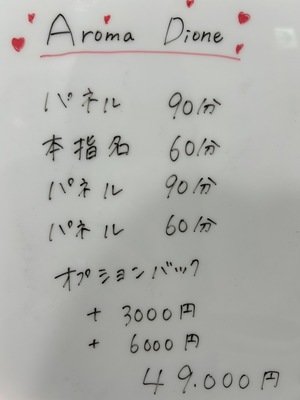 Aroma Dione
パネル 90分
本指名 60分
パネル 90分
パネル 60分
オプションバック
+ 3000円
+ 6000円
49.000円